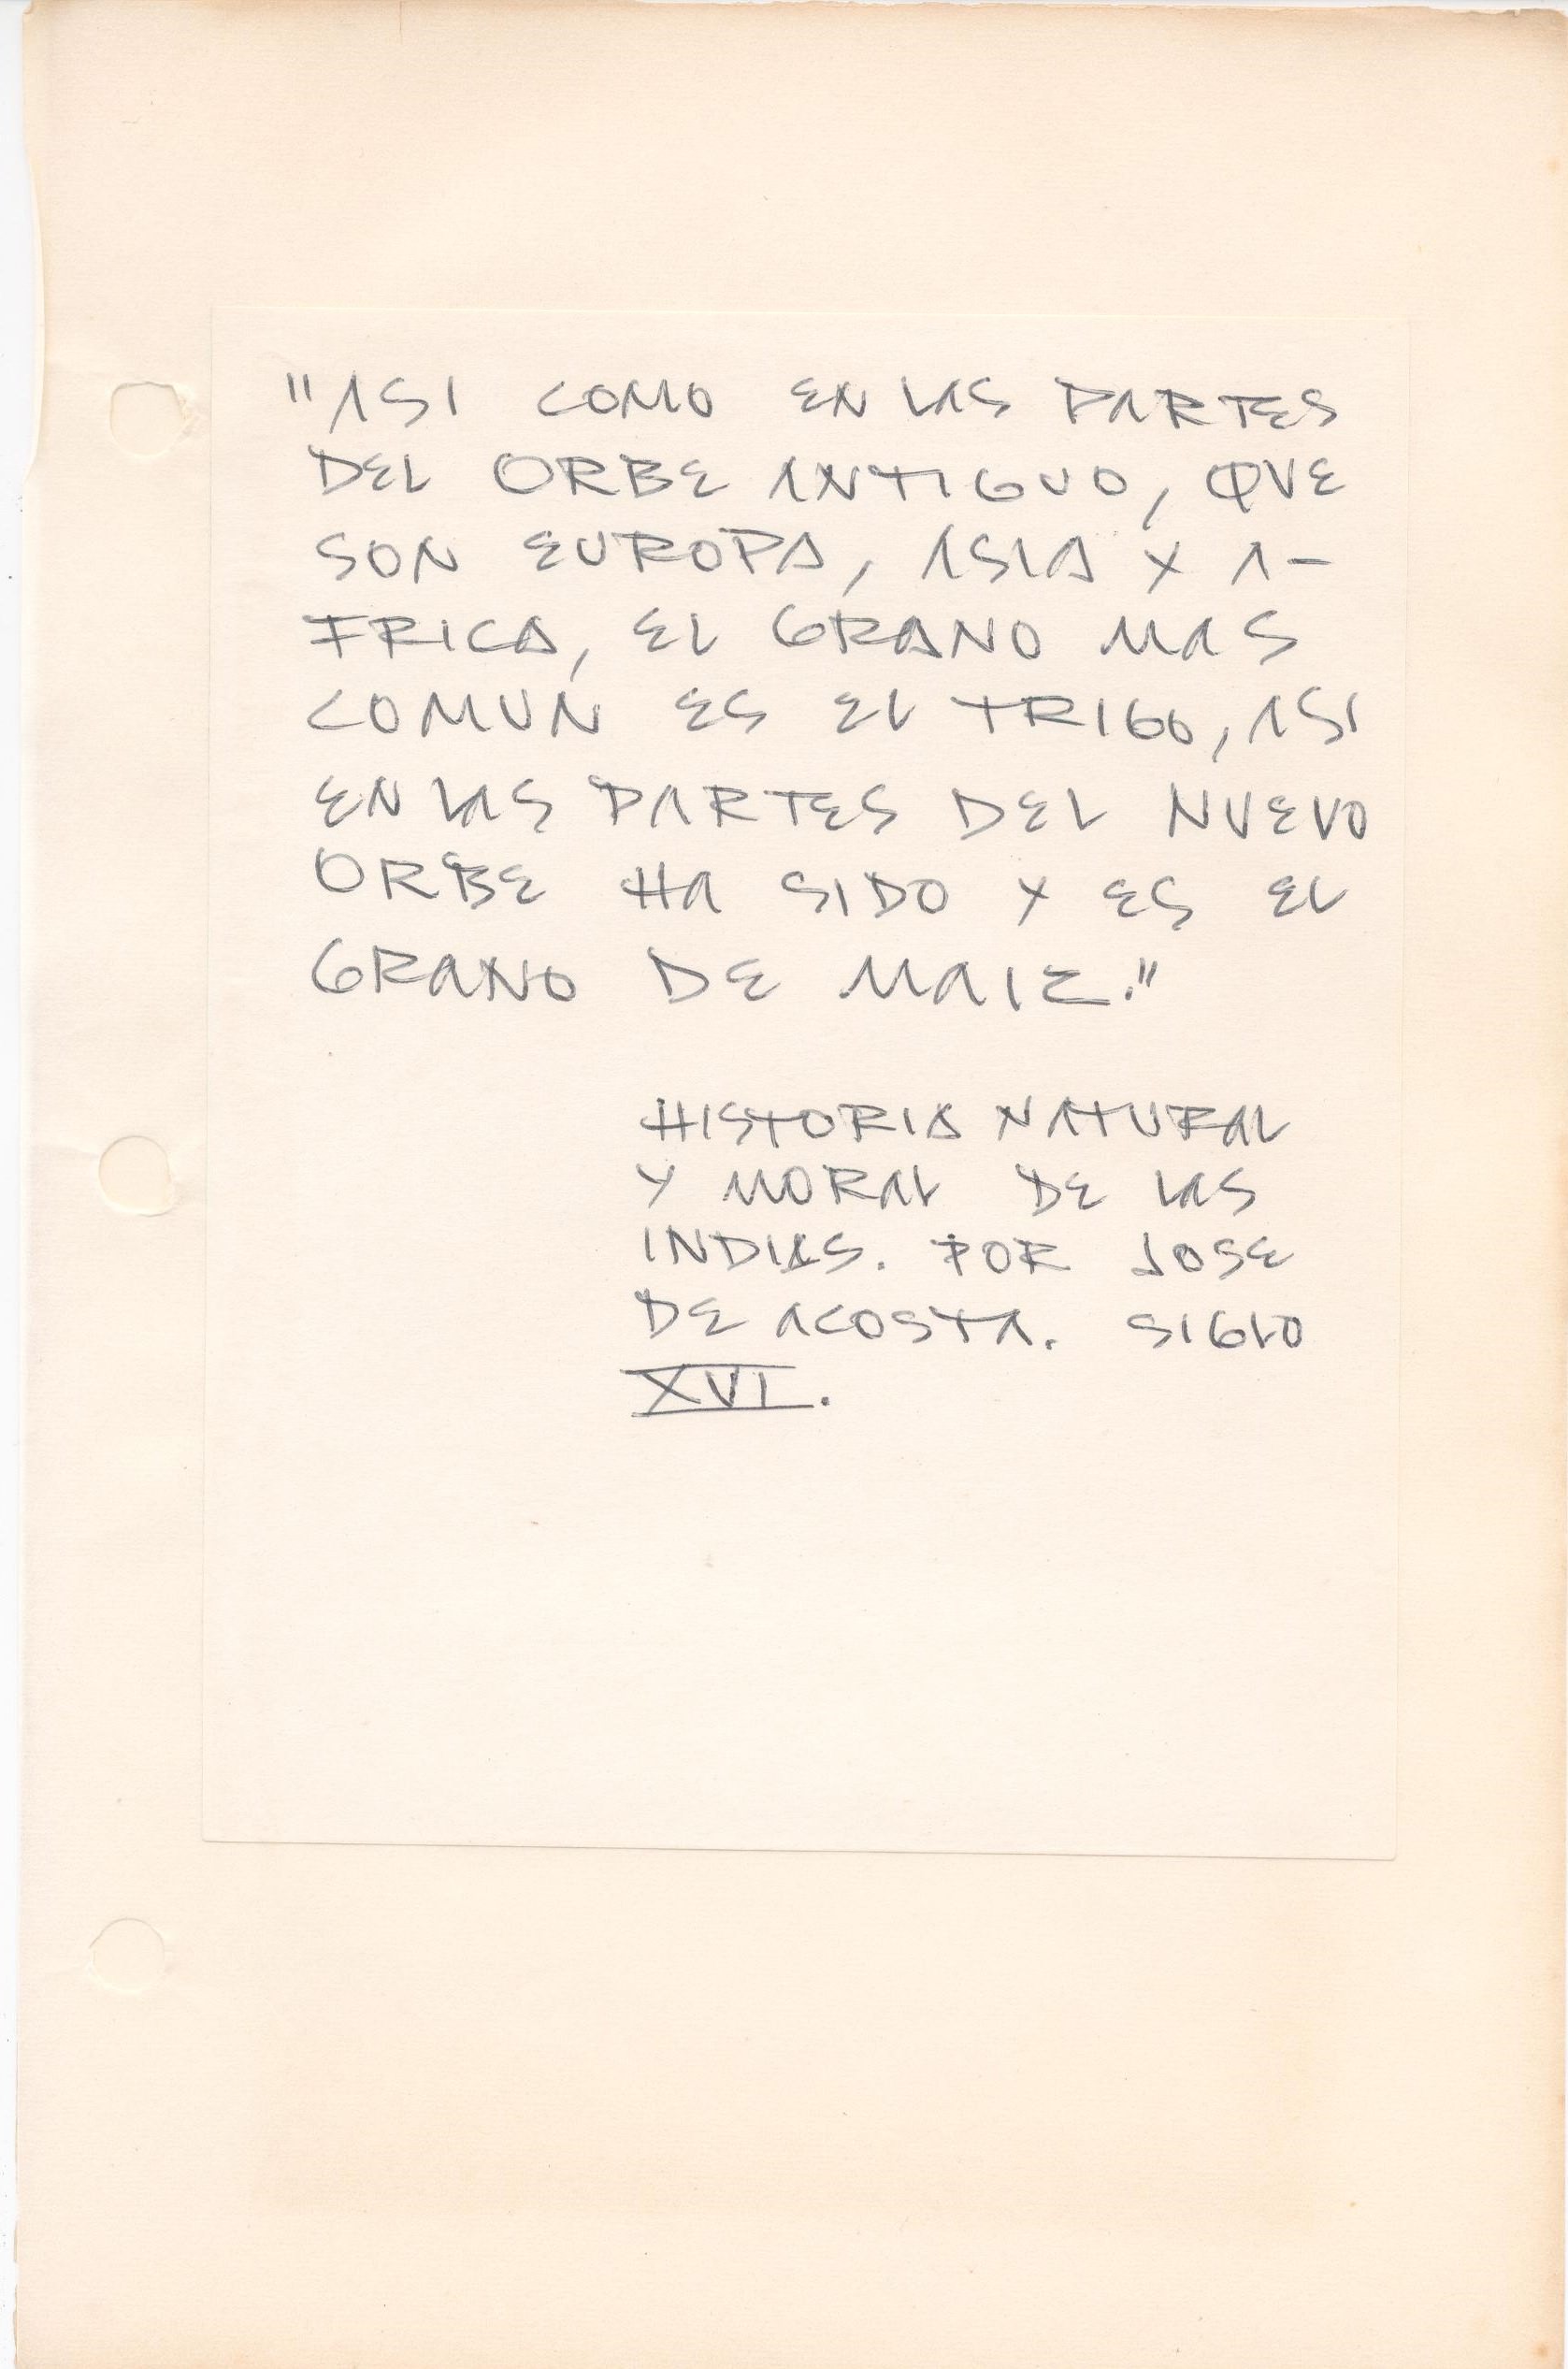 "ASI COMO EN LAS PARTES
DEL ORBE ANTIGUO, QUE
SON EUROPA, ASIA Y A-
FRICA, EL GRANO MAS
COMUN ES EL TRIGO, ASI
EN LAS PARTES DEL NUEVO
ORBE HA SIDO Y ES EL
GRANO DE MAIZ."
HISTORIA NATURAL
Y MORAL DE LAS
INDIAS. POR JOSE
DE ACOSTA. SIGLO
XVI.